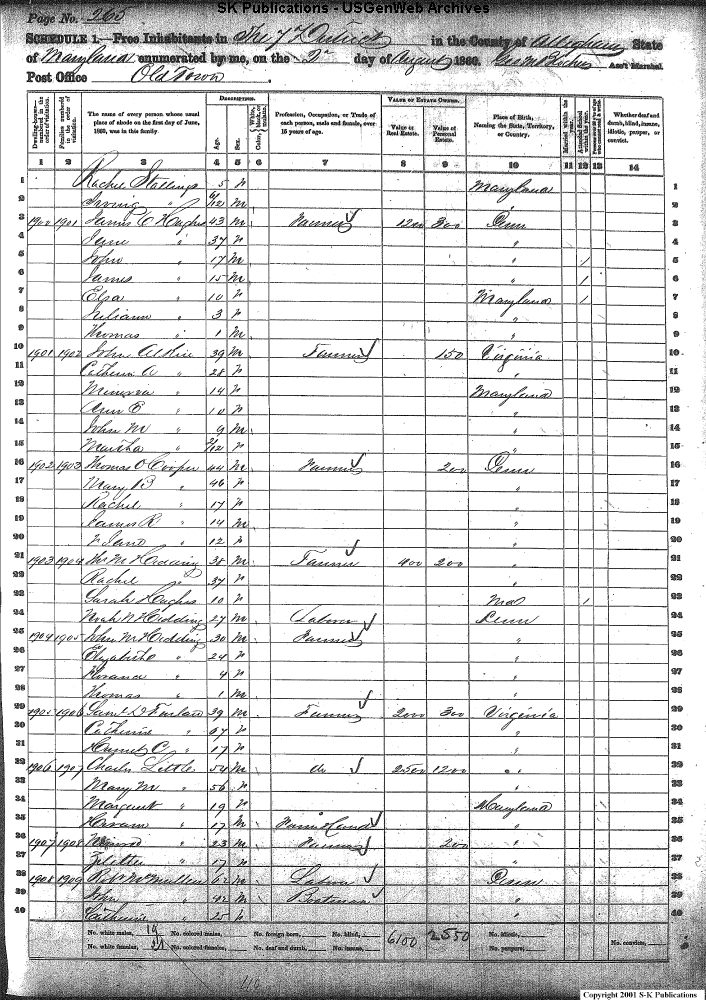 SK Publications - USGenWeb Archives
Page No. 265
SCHEDULE 1.—Free Inhabitants in The 7 District in the County of Alleghany State
of Maryland enumerated by me, on the 2d day of August 1860. Ass't Marshal.
Post Office Old Town.
Dwelling-houses—numbered in the order of visitation.
Families numbered in the order of visitation.
The name of every person whose usual place of abode on the first day of June, 1860, was in this family.
DESCRIPTION.
Age.
Sex.
Profession, Occupation, or Trade of each person, male and female, over 15 years of age.
VALUE OF ESTATE OWNED.
Value of Real Estate.
Value of Personal Estate.
Place of Birth, Naming the State, Territory, or Country.
Married within the year.
Attended School within the year.
Whether deaf and dumb, blind, insane, idiotic, pauper, or convict.
1 2 3 4 5 6 7 8 9 10 11 12 13 14
1 Rachel Stallings 5 Maryland 1
2 Irving " /12 M " 2
3 1900 1901 James C Hughes 43 M Farmer 1200 300 Penn 3
4 Jane " 37 " 4
5 John " 17 M " / 5
6 James " 15 M " / 6
7 Elsa " 10 Maryland / 7
8 Juliann " 3 " 8
9 Thomas " 1 M " 9
10 1901 1902 John 39 M Farmer 150 Virginia 10
11 Catherine A " 28 " 11
12 Minerva " 14 Maryland 12
13 Ann E " 10 " 13
14 John M " 9 M " 14
15 Martha " /12 " 15
16 1902 1903 Thomas O Cooper 44 M Farmer 200 Penn 16
17 Mary B " 46 " 17
18 Rachel " 17 " 18
19 James R " 14 M " 19
20 Jane " 12 " 20
21 1903 1904 M Hedding 38 M Farmer 400 200 " 21
22 Rachel " 37 " 22
23 Sarah Hughes 10 Md / 23
24 Noah N Hedding 27 M Labour Penn 24
25 1904 1905 M Hedding 30 M Farmer " 25
26 Elizabeth " 24 " 26
27 Rosana " 4 " 27
28 Thomas " 1 M " 28
29 1905 1906 Saml D Furlow 39 M Farmer 2000 300 Virginia 29
30 Catherine " 30
31 Harriet C " 17 " 31
32 1906 1907 Charles Little 54 M do 2500 1200 " 32
33 Mary M " 56 " 33
34 Margaret " 19 Maryland 34
35 Hiram " 17 M Farm Hand " 35
36 1907 1908 23 M Farmer 200 " 36
37 " 17 " 37
38 1908 1909 Robt McMullen 62 M Labour Penn 38
39 John " 42 M Boatman " 39
40 Catherine " 25 " 40
No. white males, 19 No. colored males, No. foreign born, No. blind, 6100 2550 No. idiotic, No. convicts,
No. white females, 21 No. colored females, No. deaf and dumb, No. insane, No. paupers,
Copyright 2001 S-K Publications